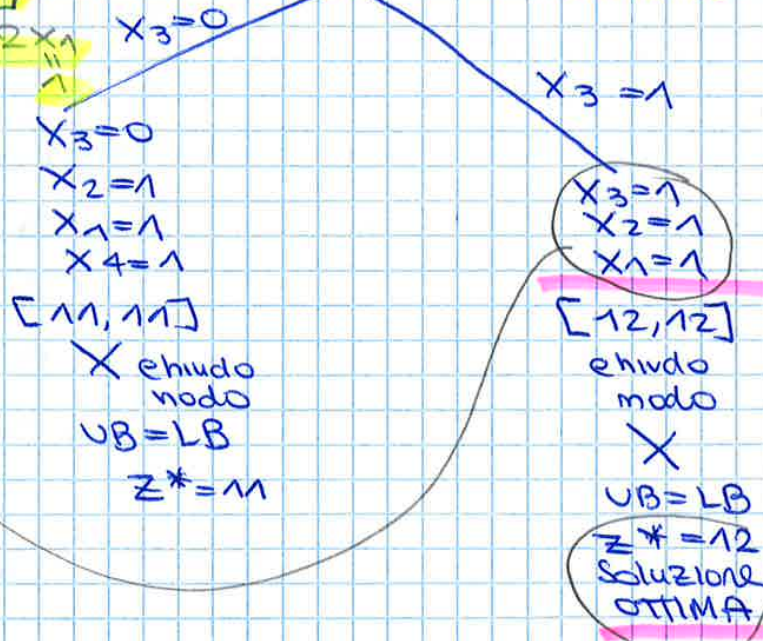 2x1
=
1
x3=0
x3=1
x3=0
x2=1
x1=1
x4=1
[11,11]
X chiudo
nodo
UB=LB
Z*=11
x3=1
x2=1
x1=1
[12,12]
chiudo
nodo
X
UB=LB
Z*=12
Soluzione
OTTIMA